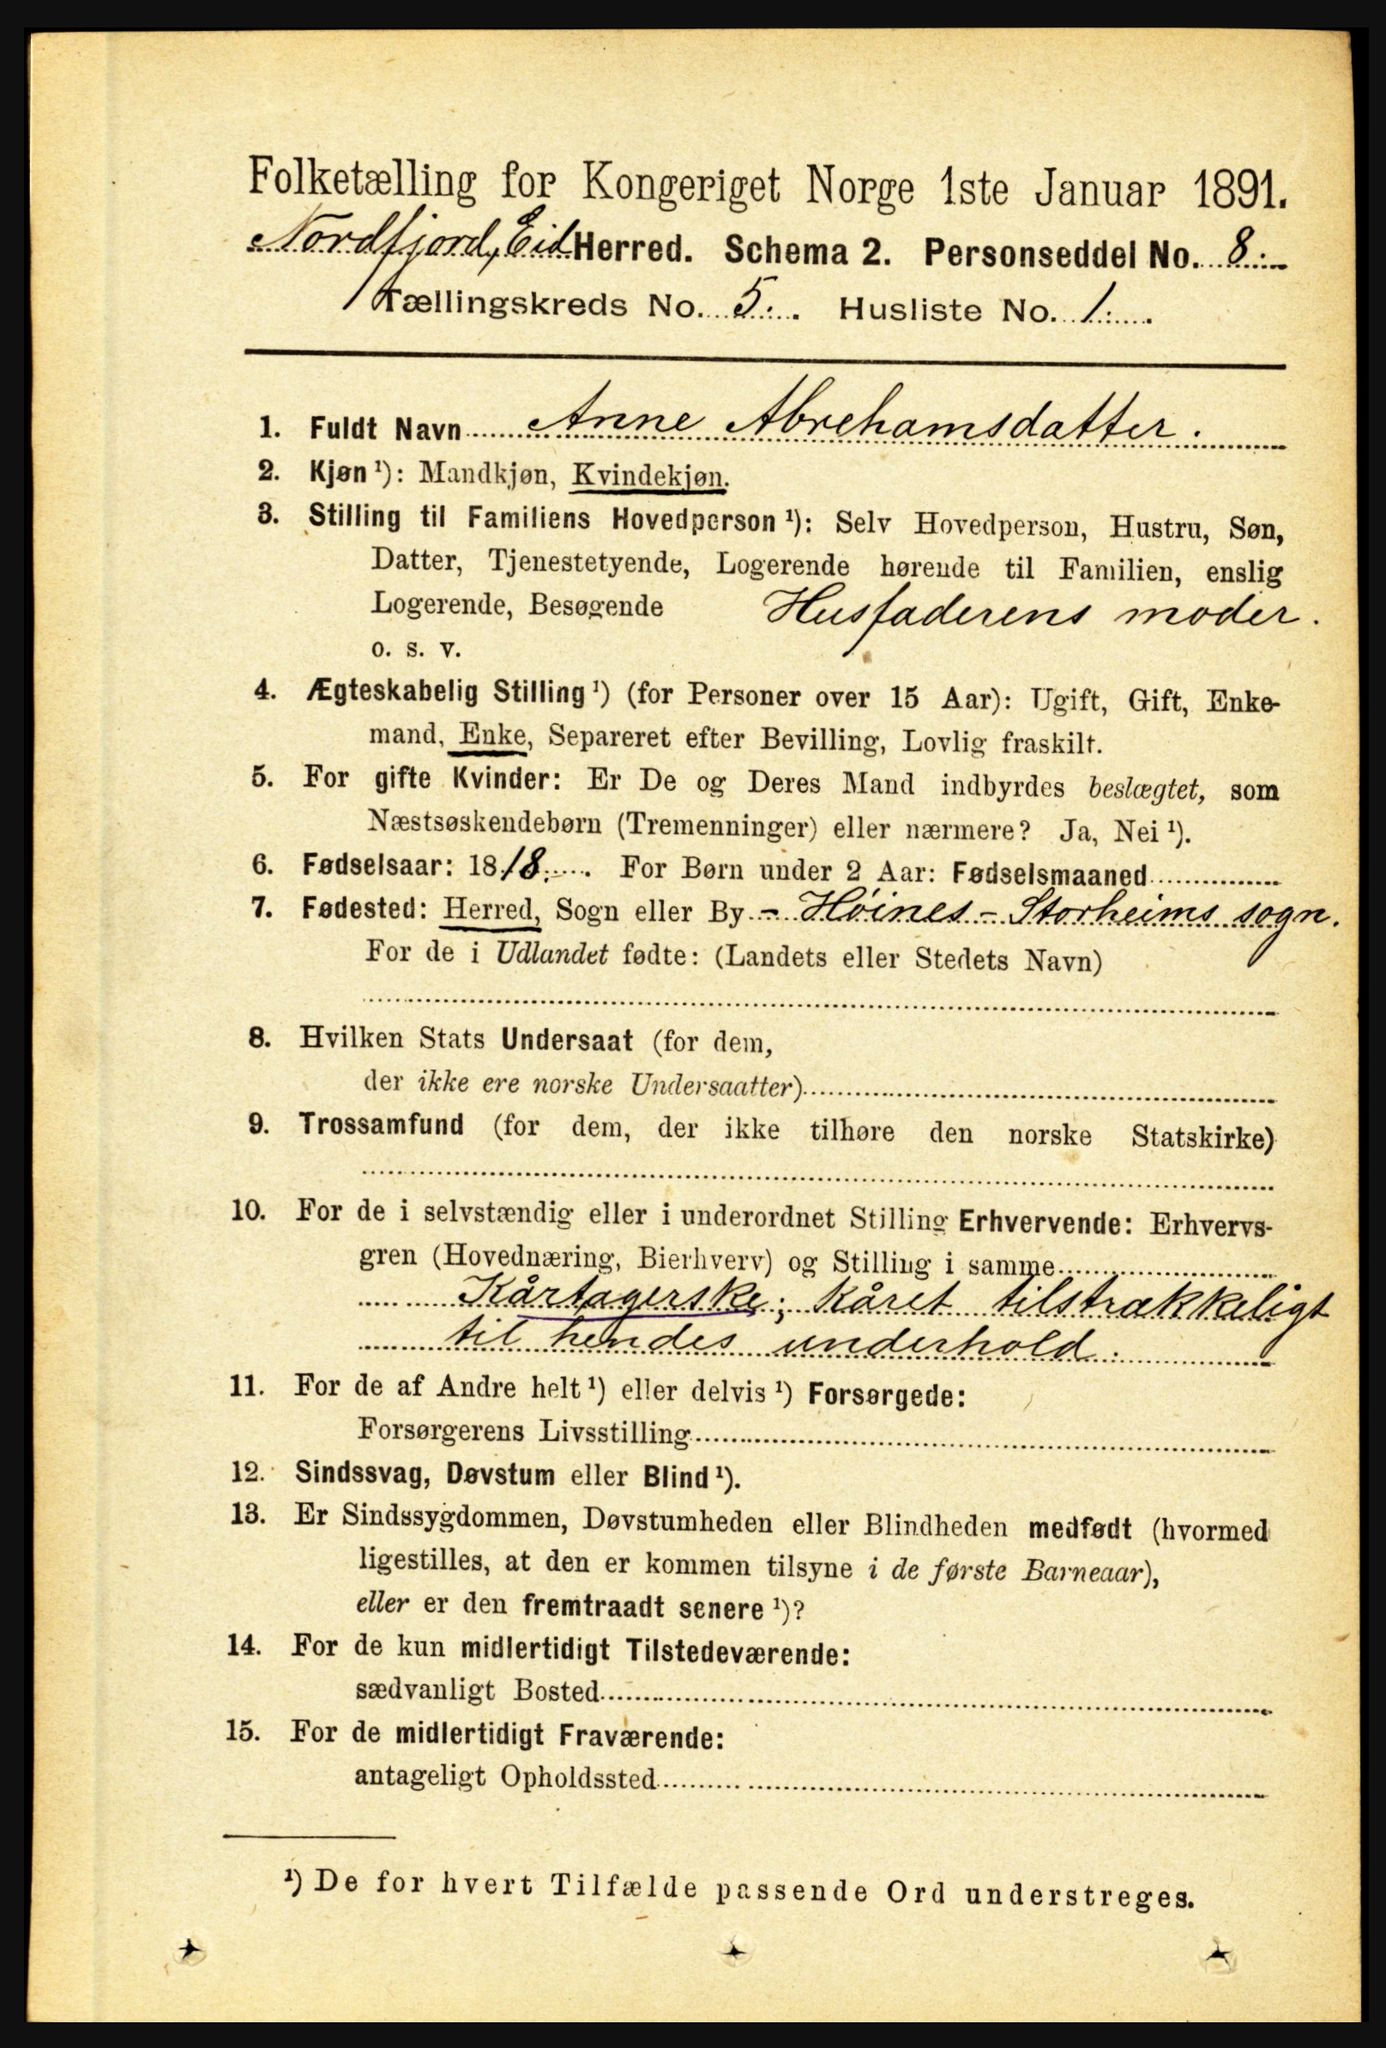 Folketælling for Kongeriget Norge 1ste Januar 1891.
Nordfjord, Eid Herred. Schema 2. Personseddel No. 8.
Tællingskreds No. 5. Husliste No. 1.
1. Fuldt Navn Anne Abrehamsdatter.
2. Kjøn ¹): Mandkjøn, Kvindekjøn.
3. Stilling til Familiens Hovedperson ¹): Selv Hovedperson, Hustru, Søn,
Datter, Tjenestetyende, Logerende hørende til Familien, enslig
Logerende, Besøgende Husfaderens moder.
o. s. v.
4. Ægteskabelig Stilling ¹) (for Personer over 15 Aar): Ugift, Gift, Enke-
mand, Enke, Separeret efter Bevilling, Lovlig fraskilt.
5. For gifte Kvinder: Er De og Deres Mand indbyrdes beslægtet, som
Næstsøskendebørn (Tremenninger) eller nærmere? Ja, Nei ¹).
6. Fødselsaar: 1818. For Børn under 2 Aar: Fødselsmaaned
7. Fødested: Herred, Sogn eller By - Höines - Storheims sogn.
For de i Udlandet fødte: (Landets eller Stedets Navn)
8. Hvilken Stats Undersaat (for dem,
der ikke ere norske Undersaatter)
9. Trossamfund (for dem, der ikke tilhøre den norske Statskirke)
10. For de i selvstændig eller i underordnet Stilling Erhvervende: Erhvervs-
gren (Hovednæring, Bierhverv) og Stilling i samme
Kårtagerske; kåret tilstrækkeligt
til hendes underhold.
11. For de af Andre helt ¹) eller delvis ¹) Forsørgede:
Forsørgerens Livsstilling
12. Sindssvag, Døvstum eller Blind ¹).
13. Er Sindssygdommen, Døvstumheden eller Blindheden medfødt (hvormed
ligestilles, at den er kommen tilsyne i de første Barneaar),
eller er den fremtraadt senere ¹)?
14. For de kun midlertidigt Tilstedeværende:
sædvanligt Bosted
15. For de midlertidigt Fraværende:
antageligt Opholdssted
¹) De for hvert Tilfælde passende Ord understreges.